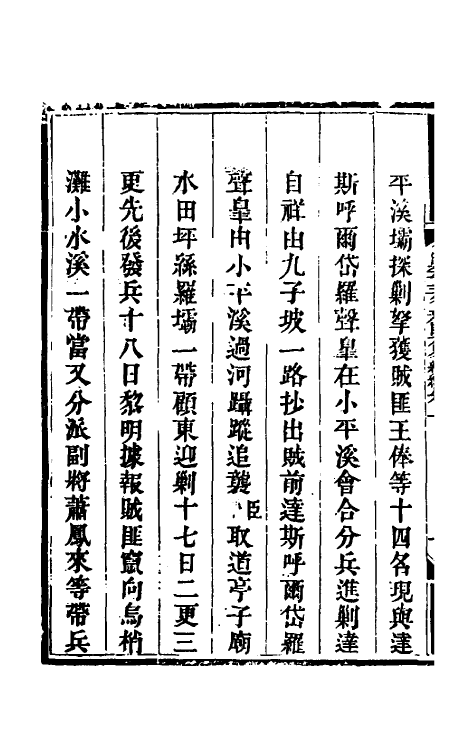 平溪壩探剿拏獲賊匪王俸等十四名現與達
斯呼爾岱羅聲皋在小平溪會合分兵進剿達
自祥由九子坡一路抄出賊前達斯呼爾岱羅
聲皋由小平溪過河躡蹤追襲臣取道亭子廟
水田坪絲羅壩一帶顧東迎剿十七日二更三
更先後發兵十八日黎明據報賊匪竄向烏梢
灘小水溪一帶當又分派副將蕭鳳來等帶兵